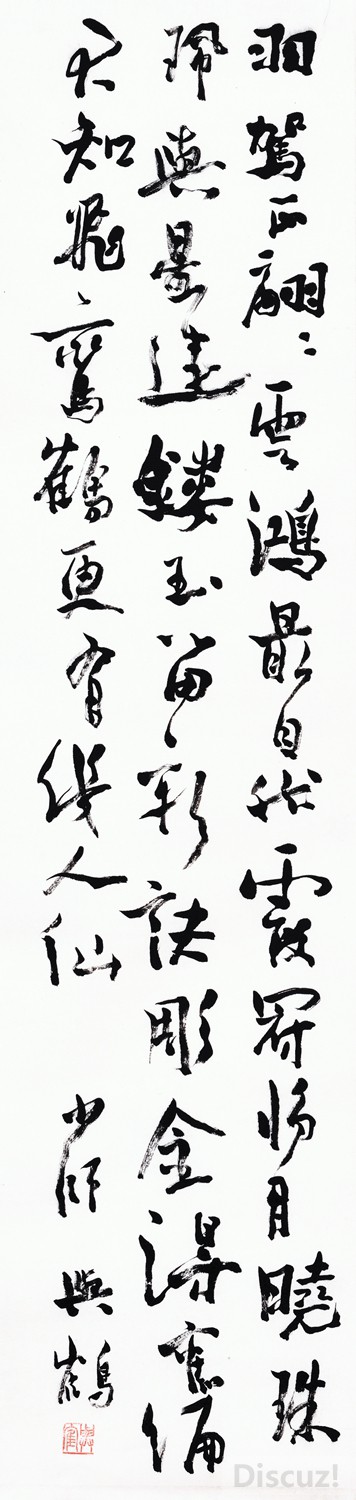 羽駕正翩二雲鴻最自然霞冠將月曉珠
珮與星連鏤玉留新訣彫金得舊編
不知飛鸞鶴更有幾人仙 少師 與鶴
Discuz!